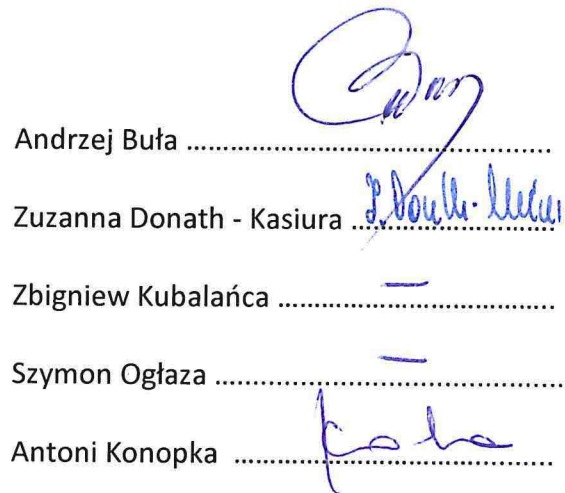 Andrzej Buła ..........................................................
Zuzanna Donath - Kasiura ................................
Zbigniew Kubalańca ............................................
Szymon Ogłaza ......................................................
Antoni Konopka ...................................................